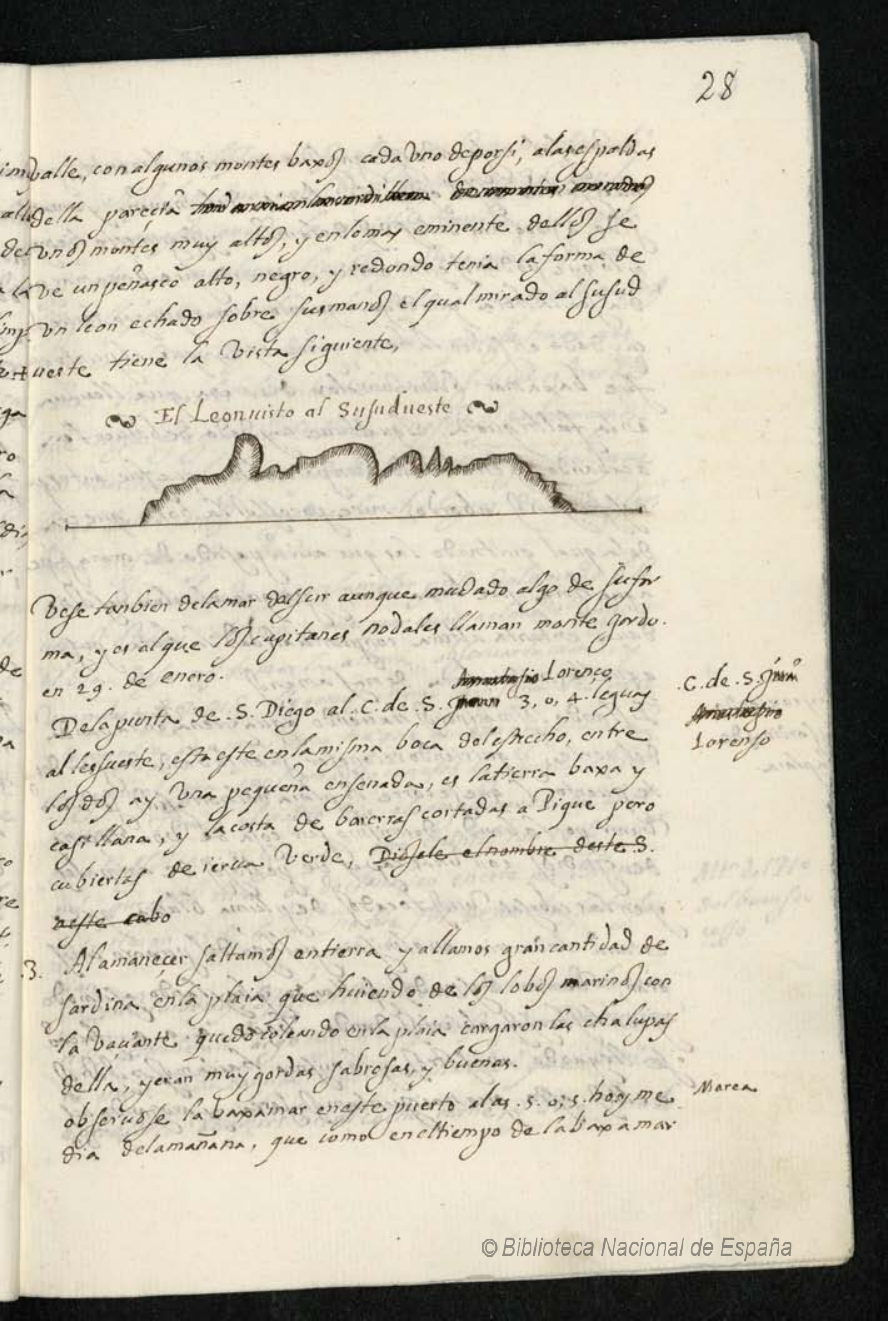 28
valle, con algunos montes baxos cada vno deporsi, alasespaldas
della pareçia
vnos montes muy altos, y enlomas eminente dellos se
ve un peñasco alto, negro, y redondo tenia la forma de
vn leon echado sobre susmanos el qual mirado al susud
ueste tiene la vista siguiente,
El Leon visto al Susudueste
Vese tanbien delamar delsur aunque mudado algo de su for
ma, y es alque los capitanes nodales llaman monte gordo.
en 29. de enero.
Anastasio Lorenço
Dela punta de .S. Diego al .C. de .S. Juan 3, o, 4. leguas
al lessueste, esta este en lamisma boca del estrecho, entre
los dos ay vna pequeña ensenada, es latierra baxa y
casi llana, y la costa de barerras cortadas a Pique pero
cubiertas de ierua verde, Diosele el nombre deste S.
aeste cabo
.C. de .S. Juan
Anastasio
Lorenso
.3. Al amaneçer saltamos entierra y allamos gran cantidad de
sardina en la plaia que huiendo de los lobos marinos con
la vaçante quedo coleando en la plaia cargaron las chalupas
della, y eran muy gordas sabrosas, y buenas.
obseruose la baxamar en este puerto alas .5. o, 5. horas y me
dia delamañana, que como en eltiempo de la baxamar
Marea
© Biblioteca Nacional de España